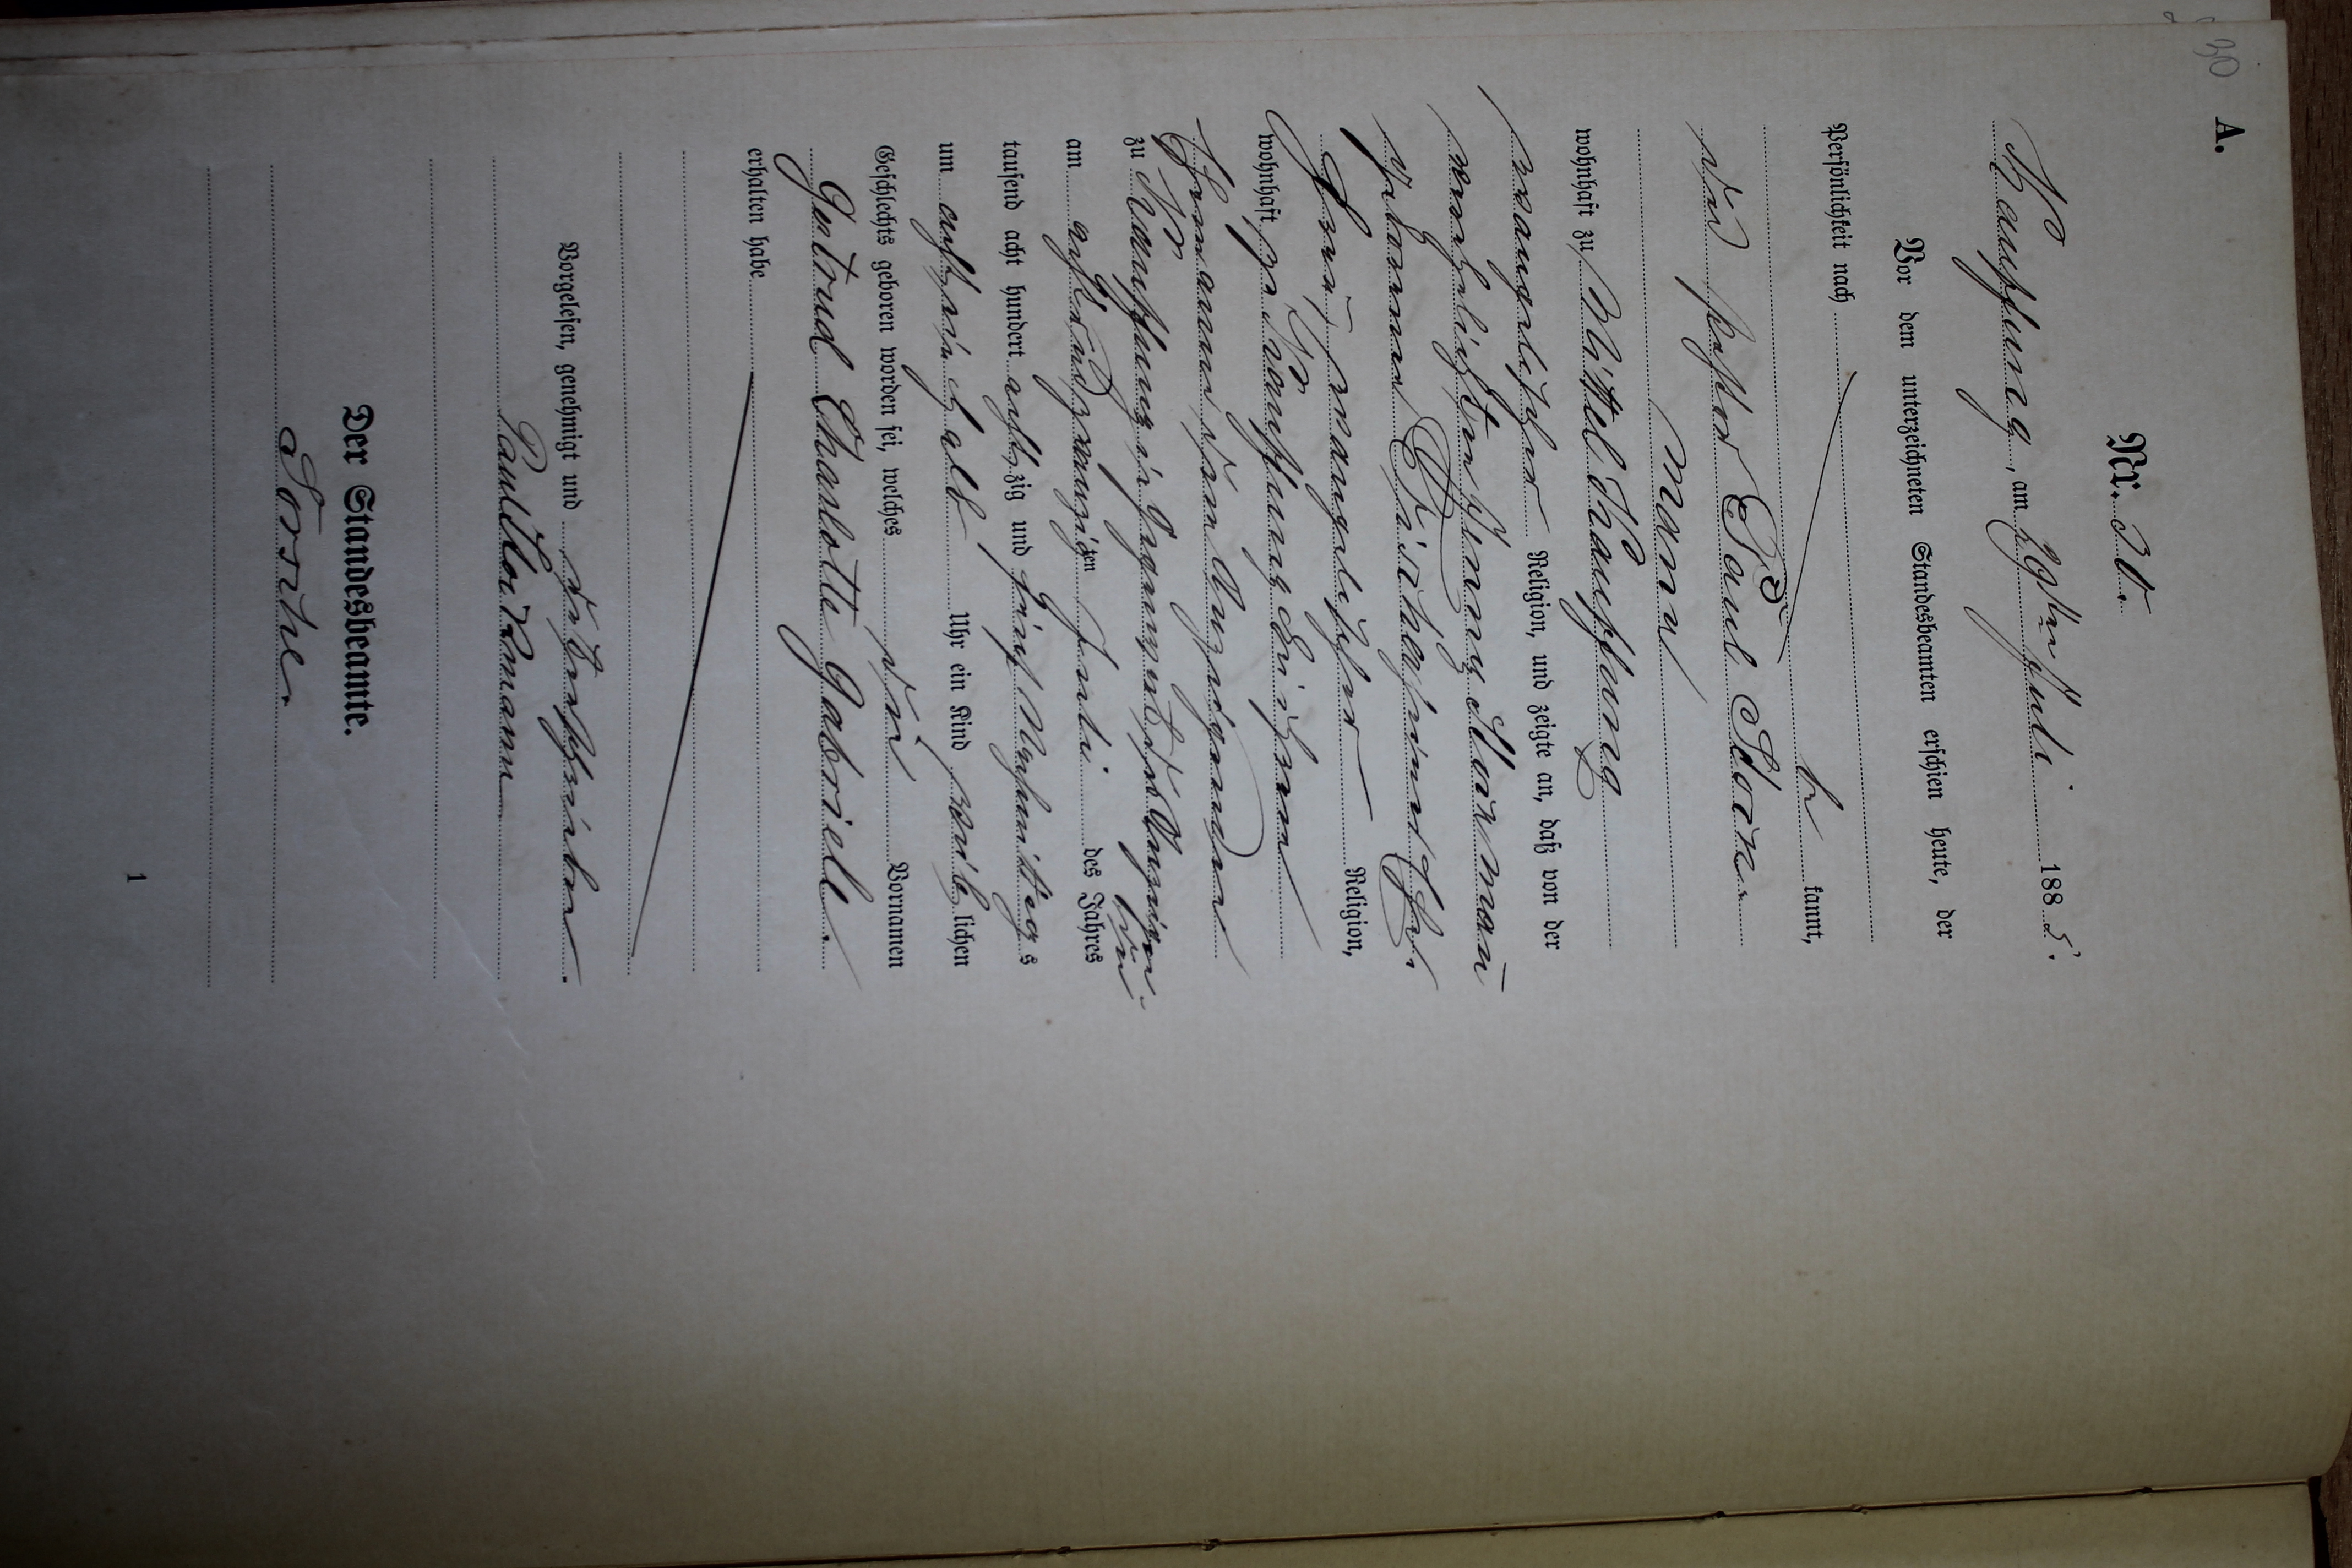 30
A.
Nr. 30.
Kauffung, am 29ten Juli 1885.
Vor dem unterzeichneten Standesbeamten erschien heute, der
Persönlichkeit nach
be kannt,
der Pastor Paul
mann
wohnhaft zu Mittel Kauffung
evangelischer Religion, und zeigte an, daß von der
verehelichten
geborenen
Frau, evangelischer Religion,
wohnhaft zu Kauffung bei ihrem
Ehemann dem Anzeigenden
zu Kauffung in Gegenwart des Anzeigen-
den
am achtundzwanzigsten Juli des Jahres
tausend acht hundert achtzig und fünf Nachmittags
um acht einhalb Uhr ein Kind weiblichen
Geschlechts geboren worden sei, welches die Vornamen
Gertrud Charlotte Gabriele
erhalten habe
Vorgelesen, genehmigt und unterschrieben.
Paul
Der Standesbeamte.
1